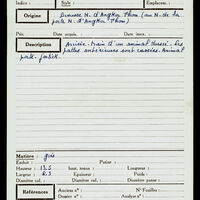 Indice : Série : Emplacem. :
Origine Terrasse N. d'Angkor Thom (au N. de la
porte N. d'Angkor Thom)
Date acq. : Date inscr. :
Description Arrière-train d'un animal dressé. Les
pattes antérieures sont cassées. Animal
Matière grès
Embase : Patine :
Hauteur : haut. tenon : Longueur :
Largeur : Epaisseur : Poids :
Diamètre col : Diamètre panse :
Références Anciens nos : N° Feuilles :
Dossier : Analyse n° :